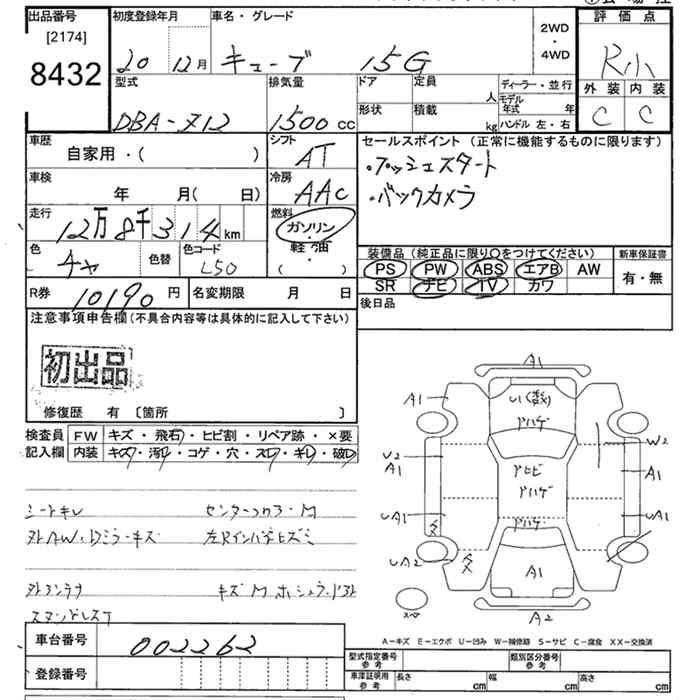 出品番号 初度登録年月 車名・グレード 2WD・4WD 評価点
[2174]
8432
20 12月 キューブ 15G R小
型式 排気量 ドア 定員 人 ディーラー・並行 外装 内装
DBA-Z12 1500cc 形状 積載 kg モデル年式 年 ハンドル 左・右 C C
車歴 シフト セールスポイント (正常に機能するものに限ります)
自家用・( ) AT ・プッシュスタート
車検 冷房 ・バックカメラ
年 月(日) AAC
走行 燃料
12万8千314km ガソリン
軽油
・( )
色 色替 色コード
チャ L50
装備品 (純正品に限り○をつけてください) 新車保証書
PS PW ABS エアB AW 有・無
SR ナビ TV カワ
R券 10190円 名変期限 月 日 後日品
注意事項申告欄(不具合内容等は具体的に記入して下さい)
初出品
修復歴 有 〔箇所 〕
検査員 FW キズ・飛石・ヒビ割・リペア跡・×要
記入欄 内装 キズ・汚レ・コゲ・穴・スレ・キレ・破レ
シートキレ
キズM
A1
A1 U1(数)
ドハゲ W2
U2
A1 A1
ドハゲ
UA1 UA1
ドハゲ
UA2 A1
A2
A-キズ E-エクボ U-凹み W-補修跡 S-サビ C-腐食 XX-交換済
車台番号 002262
登録番号
型式指定番号 参考 類別区分番号 参考
車庫証明用 参考 長さ cm 幅 cm 高さ cm